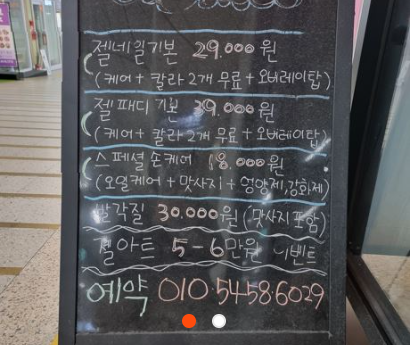 젤네일기본 29.000원
(케어+칼라2개무료+오버레이탑)
젤패디기본 39.000원
(케어+칼라2개무료+오버레이탑)
스페셜손케어 18.000원
(오일케어+맛사지+영양제,강화제)
발각질 30.000원 (맛사지포함)
젤아트 5-6만원 이벤트
예약 010.5458.6029